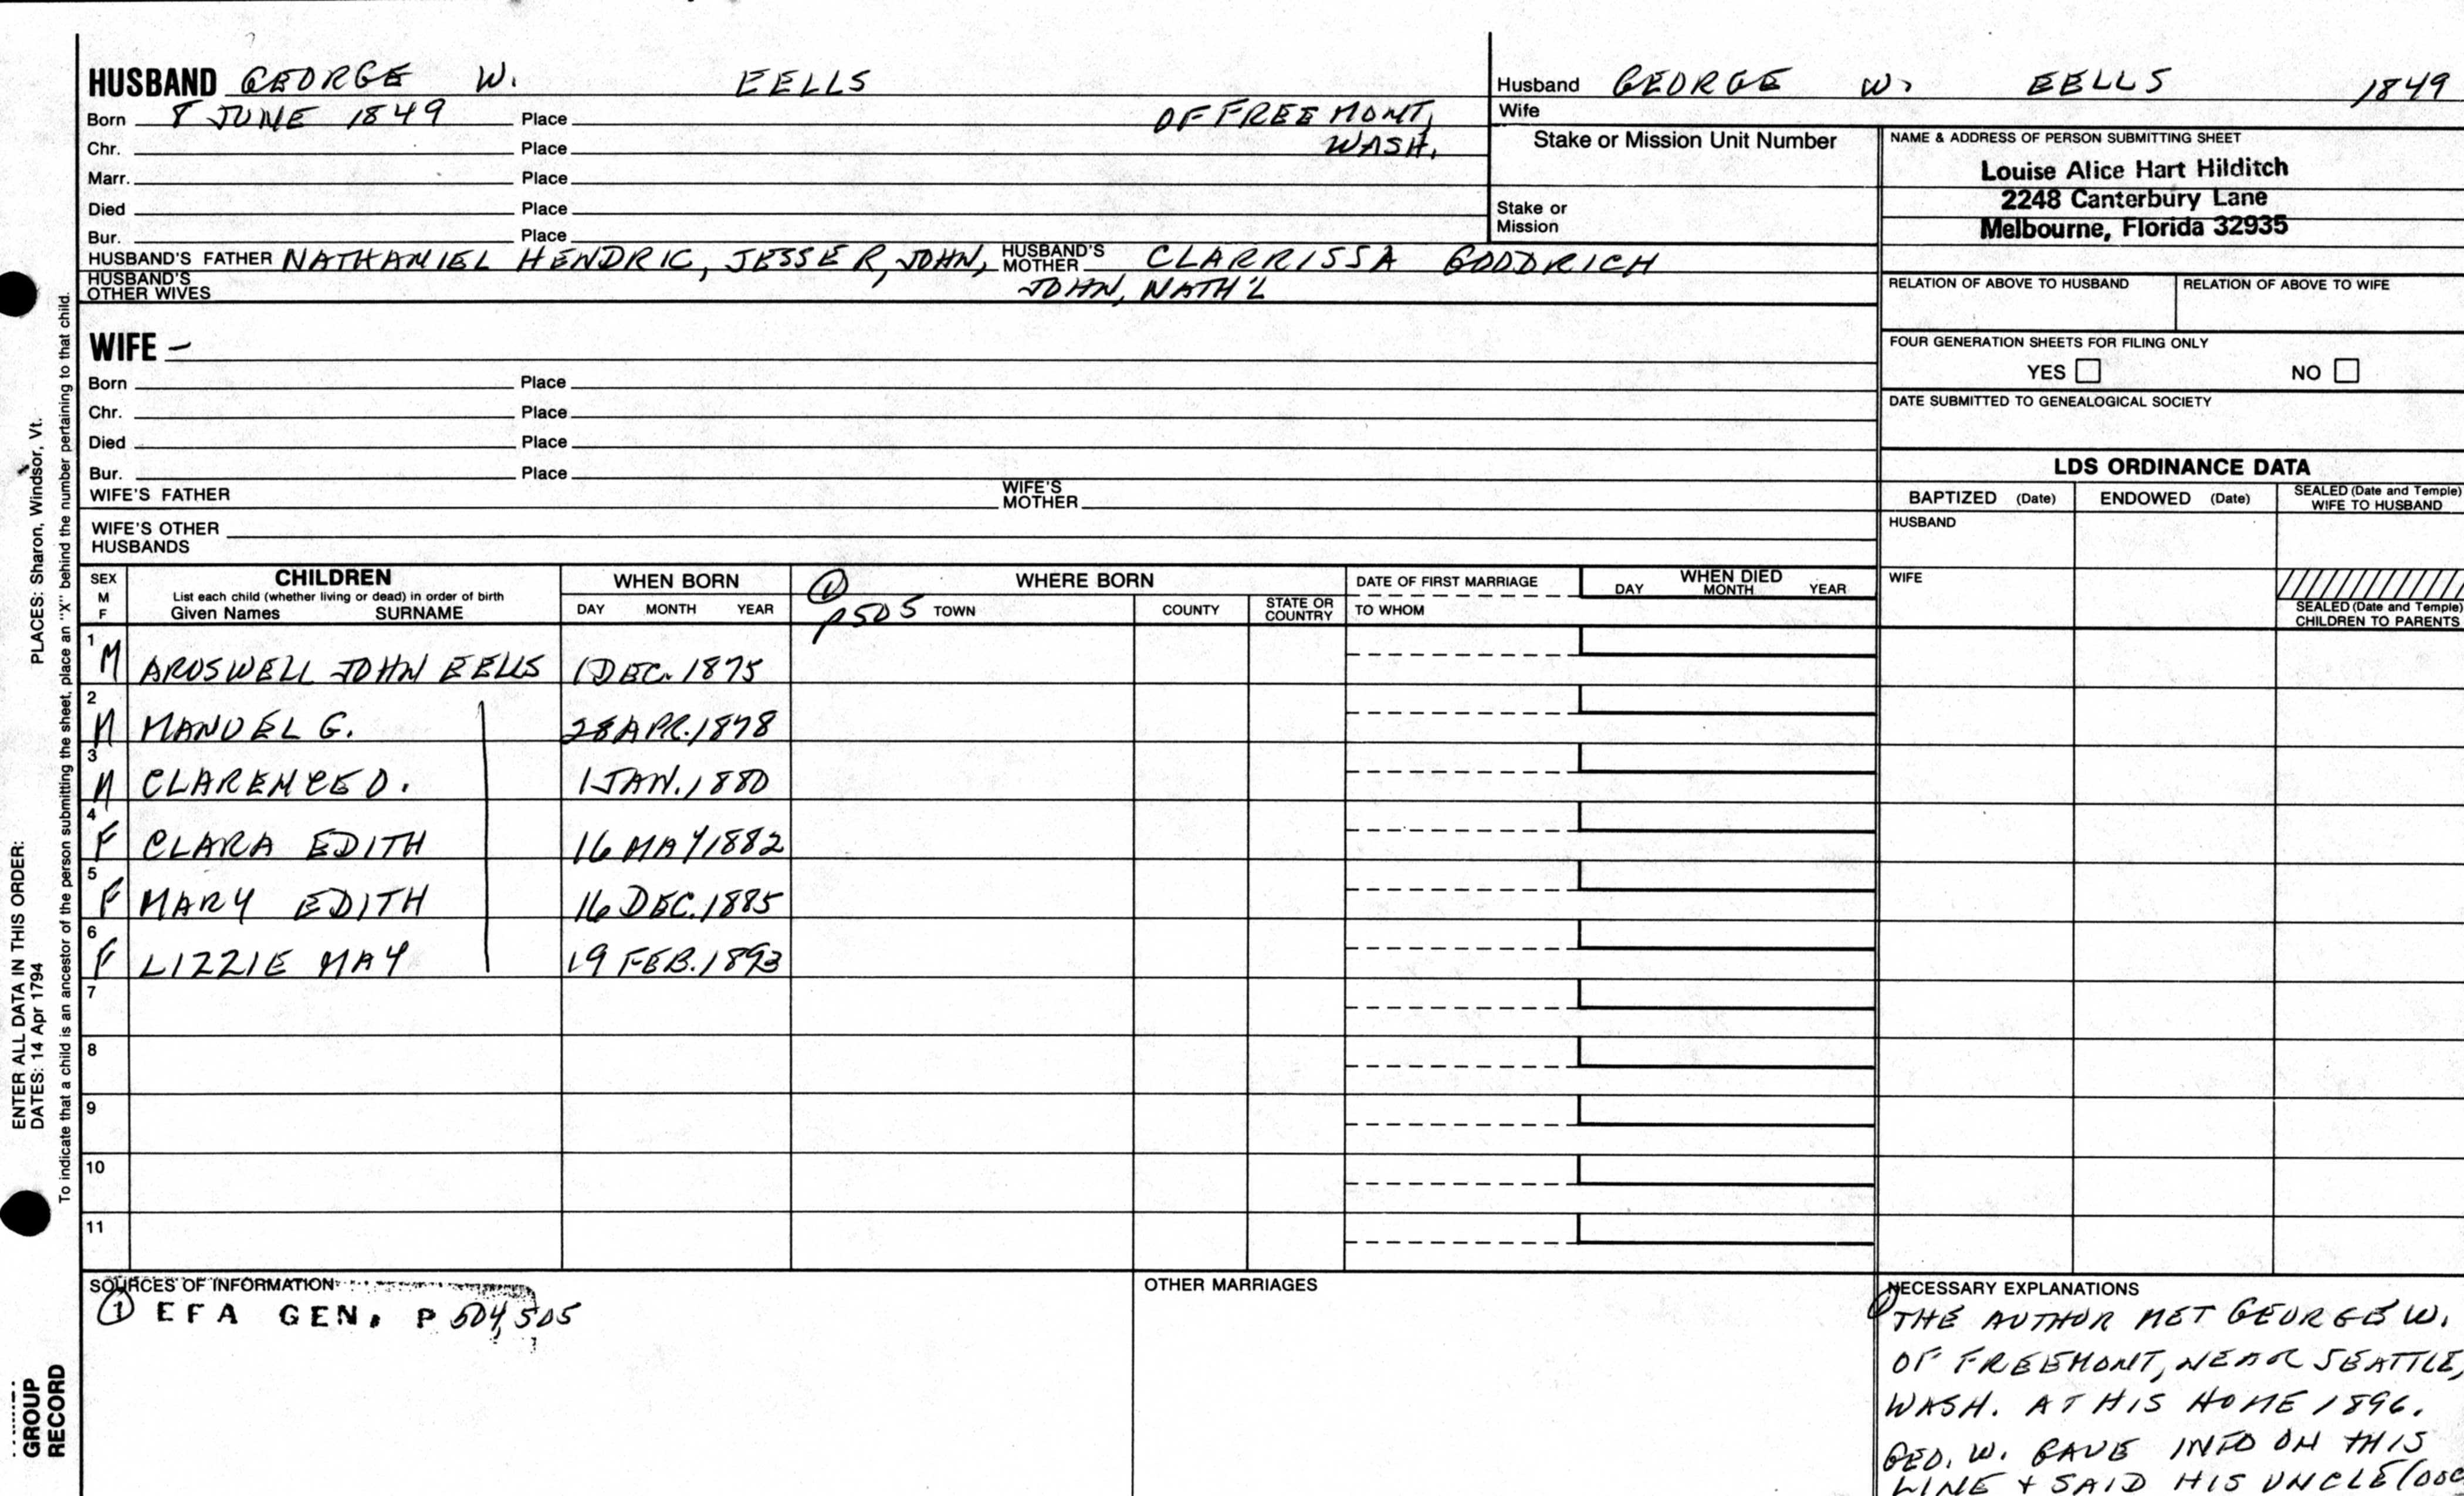 HUSBAND GEORGE W. EELLS
Born 8 JUNE 1849 Place OF FREEMONT,
Chr. Place WASH.
Marr. Place
Died Place
Bur. Place
HUSBAND'S FATHER NATHANIEL HENDRIC, JESSE R, JOHN, HUSBAND'S MOTHER CLARRISSA GOODRICH
HUSBAND'S OTHER WIVES JOHN, NATH'L
WIFE –
Born Place
Chr. Place
Died Place
Bur. Place
WIFE'S FATHER WIFE'S MOTHER
WIFE'S OTHER HUSBANDS
Husband GEORGE W. EELLS 1849
Wife
Stake or Mission Unit Number
Stake or Mission
NAME & ADDRESS OF PERSON SUBMITTING SHEET
Louise Alice Hart Hilditch
2248 Canterbury Lane
Melbourne, Florida 32935
RELATION OF ABOVE TO HUSBAND RELATION OF ABOVE TO WIFE
FOUR GENERATION SHEETS FOR FILING ONLY
YES NO
DATE SUBMITTED TO GENEALOGICAL SOCIETY
LDS ORDINANCE DATA
BAPTIZED (Date) ENDOWED (Date) SEALED (Date and Temple) WIFE TO HUSBAND
HUSBAND
WIFE
SEALED (Date and Temple) CHILDREN TO PARENTS
SEX M F CHILDREN WHEN BORN ① WHERE BORN DATE OF FIRST MARRIAGE WHEN DIED
List each child (whether living or dead) in order of birth
Given Names SURNAME DAY MONTH YEAR p505 TOWN COUNTY STATE OR COUNTRY TO WHOM DAY MONTH YEAR
1 M AROSWELL JOHN EELLS 1 DEC. 1875
2 M MANUEL G. 28 APR. 1878
3 M CLARENCE D. 1 JAN. 1880
4 F CLARA EDITH 16 MAY 1882
5 F MARY EDITH 16 DEC. 1885
6 F LIZZIE MAY 19 FEB. 1893
7
8
9
10
11
SOURCES OF INFORMATION
① EFA GEN. P 504, 505
OTHER MARRIAGES
NECESSARY EXPLANATIONS
① THE AUTHOR MET GEORGE W.
OF FREEMONT, NEAR SEATTLE,
WASH. AT HIS HOME 1896.
GEO. W. GAVE INFO ON THIS
LINE + SAID HIS UNCLE (DOC
ENTER ALL DATA IN THIS ORDER:
DATES: 14 Apr 1794 PLACES: Sharon, Windsor, Vt.
To indicate that a child is an ancestor of the person submitting the sheet, place an "X" behind the number pertaining to that child.
GROUP
RECORD